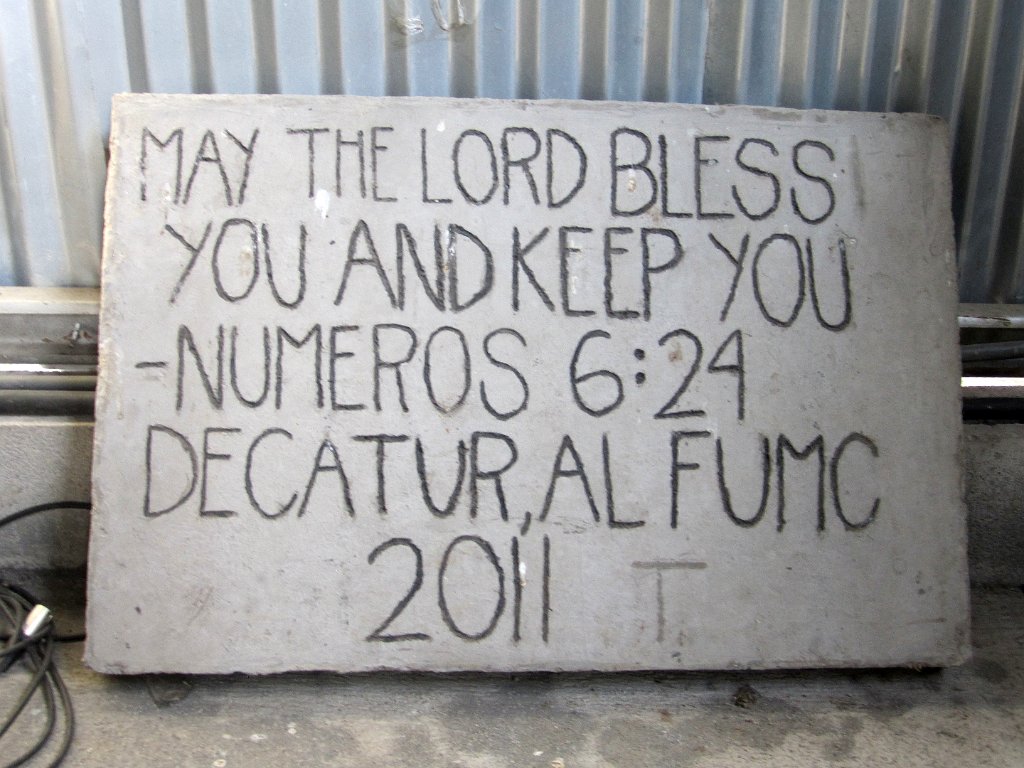 MAY THE LORD BLESS
YOU AND KEEP YOU
-NUMEROS 6:24
DECATUR, AL FUMC
2011 T